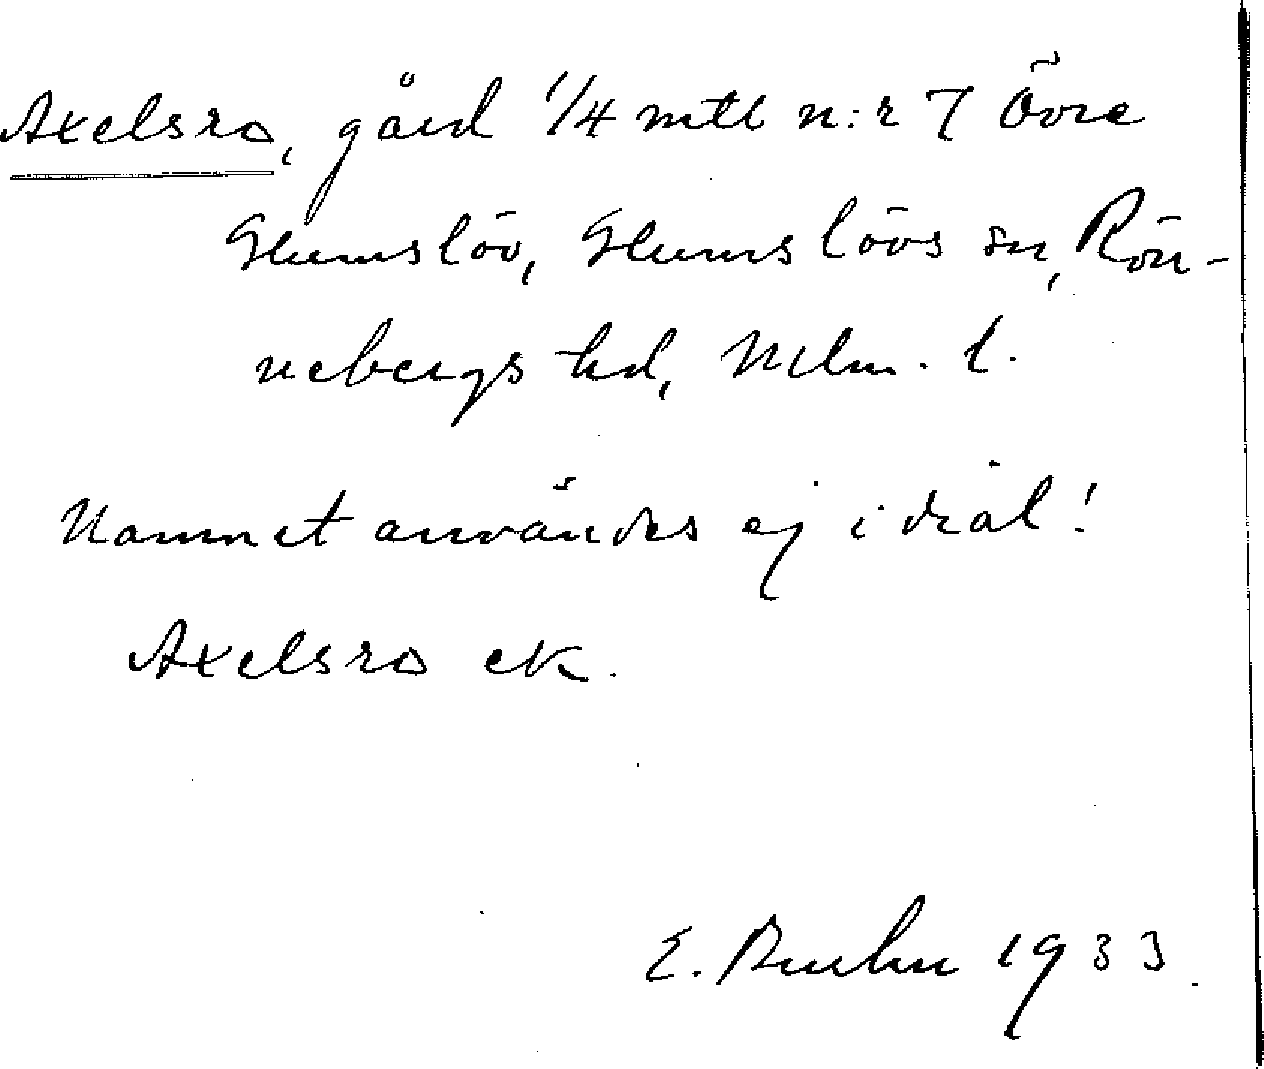 Axelsro, gård 1/4 mtl n:r 7 Övre
Glumslöv, Glumslövs sn, Rön-
nebergs hd, Mlm. l.
Namnet användes ej i dial!
Axelsro ek.
E. Bruhn 1933